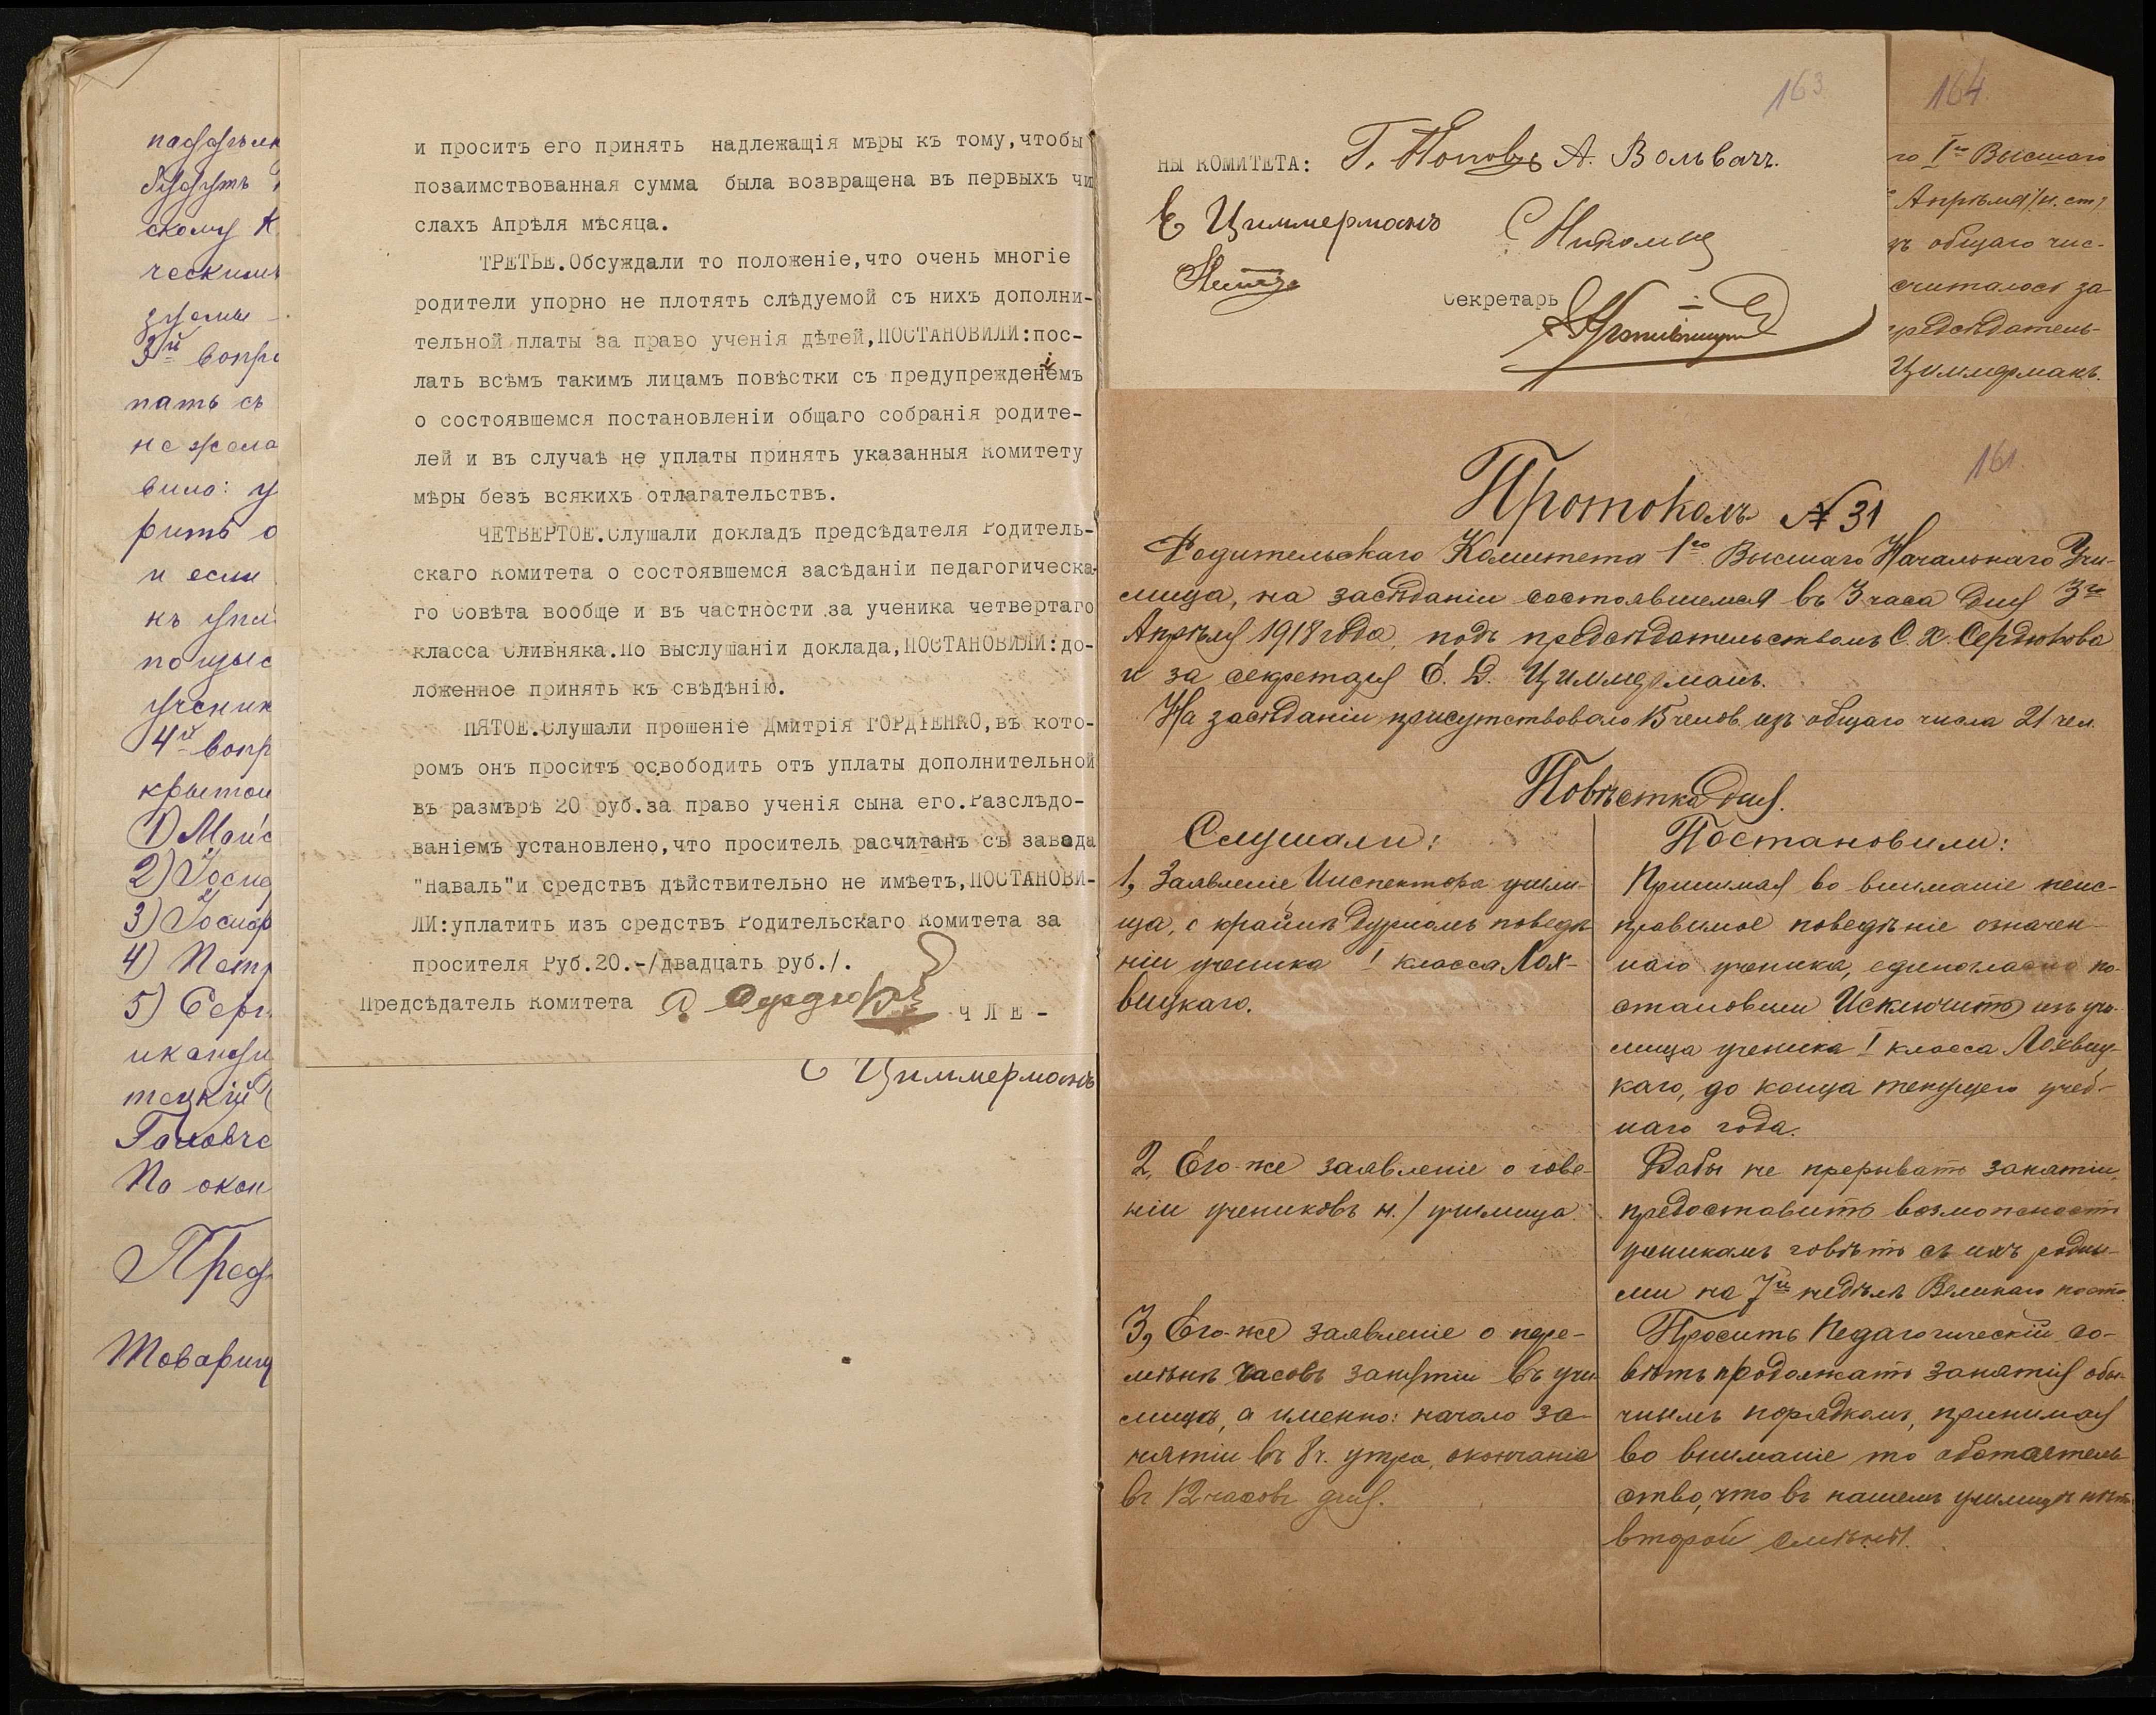 и проситъ его принять надлежащія мѣры къ тому,чтобы
позаимствованная сумма была возвращена въ первыхъ чи
слахъ Апрѣля мѣсяца.
ТРЕТЬЕ.Обсуждали то положеніе,что очень многіе
родители упорно не плотять слѣдуемой съ нихъ дополни-
тельной платы за право ученія дѣтей,ПОСТАНОВИЛИ:пос-
лать всѣмъ такимъ лицамъ повѣстки съ предупрежденіемъ
о состоявшемся постановленіи общаго собранія родите-
лей и въ случаѣ не уплаты принять указанныя Комитету
мѣры безъ всякихъ отлагательствъ.
ЧЕТВЕРТОЕ.Слушали докладъ предсѣдателя Родитель-
скаго Комитета о состоявшемся засѣданіи педагогическа-
го Совѣта вообще и въ частности за ученика четвертаго
класса Сливняка.По выслушаніи доклада,ПОСТАНОВИЛИ:до-
ложенное принять къ свѣдѣнію.
ПЯТОЕ.Слушали прошеніе Дмитрія ГОРДІЕНКО,въ кото-
ромъ онъ проситъ освободить отъ уплаты дополнительной
въ размѣрѣ 20 руб.за право ученія сына его.Разслѣдо-
ваніемъ установлено,что проситель расчитанъ съ завода
"Наваль"и средствъ дѣйствительно не имѣетъ,ПОСТАНОВИ-
ЛИ:уплатить изъ средствъ Родительскаго Комитета за
просителя Руб.20.-/двадцать руб./.
Предсѣдатель Комитета С. Сердюковъ ЧЛЕ-
Циммерманъ
скому К
3й вопр
пать съ
не жела
вило: у
рить о
и если
ученик
4й вопр
1)
2)
3)
4) Петр
5) Серг
По окон
Пред
Товарищ
163
НЫ КОМИТЕТА: Г. Поповъ А. Вольвач.
Е Циммерманъ
Секретарь
164
го Iго Высшаго
Апрѣля /н. ст/
общаго чис-
считалось за-
предсѣдатель-
Циммерманъ.
161
Протоколъ № 31
Родительскаго Комитета 1го Высшаго Начальнаго Учи-
лища, на засѣданіи состоявшемся въ 3 часа дня 3го
Апрѣля 1918 года, подъ предсѣдательствомъ С. Х. Сердюкова
и за секретаря Е. Д. Циммерманъ.
На засѣданіи присутствовало 15 челов. изъ общаго числа 21 чел.
Повѣстка дня.
Слушали:
1, Заявленіе Инспектора учили-
ща, о крайнѣ дурномъ поведе
ніи ученика I класса Лох-
вицкаго.
2, Его-же заявленіе о гове-
ніи учениковъ н./ училища.
3, Его-же заявленіе о пере-
мѣнѣ часовъ занятій въ учи
лищѣ, а именно: начало за-
нятій въ 8 ч. утра, окончаніе
въ 12 часовъ дня.
Постановили:
Принимая во вниманіе неис-
правимое поведѣніе означен-
наго ученика, единогласно по-
становили Исключить изъ учи-
лища ученика I класса Лохвиц-
каго, до конца текущего учеб-
наго года.
Дабы не прерывать занятій,
предоставить возможность
ученикамъ говѣть съ ихъ родны-
ми на 7й недѣлѣ Великаго поста
Просить Педагогическій со-
вѣтъ продолжать занятія обы-
чнымъ порядкомъ, принимая
во вниманіе то обстоятель-
ство, что въ нашемъ училищѣ нѣтъ
второй смѣны.